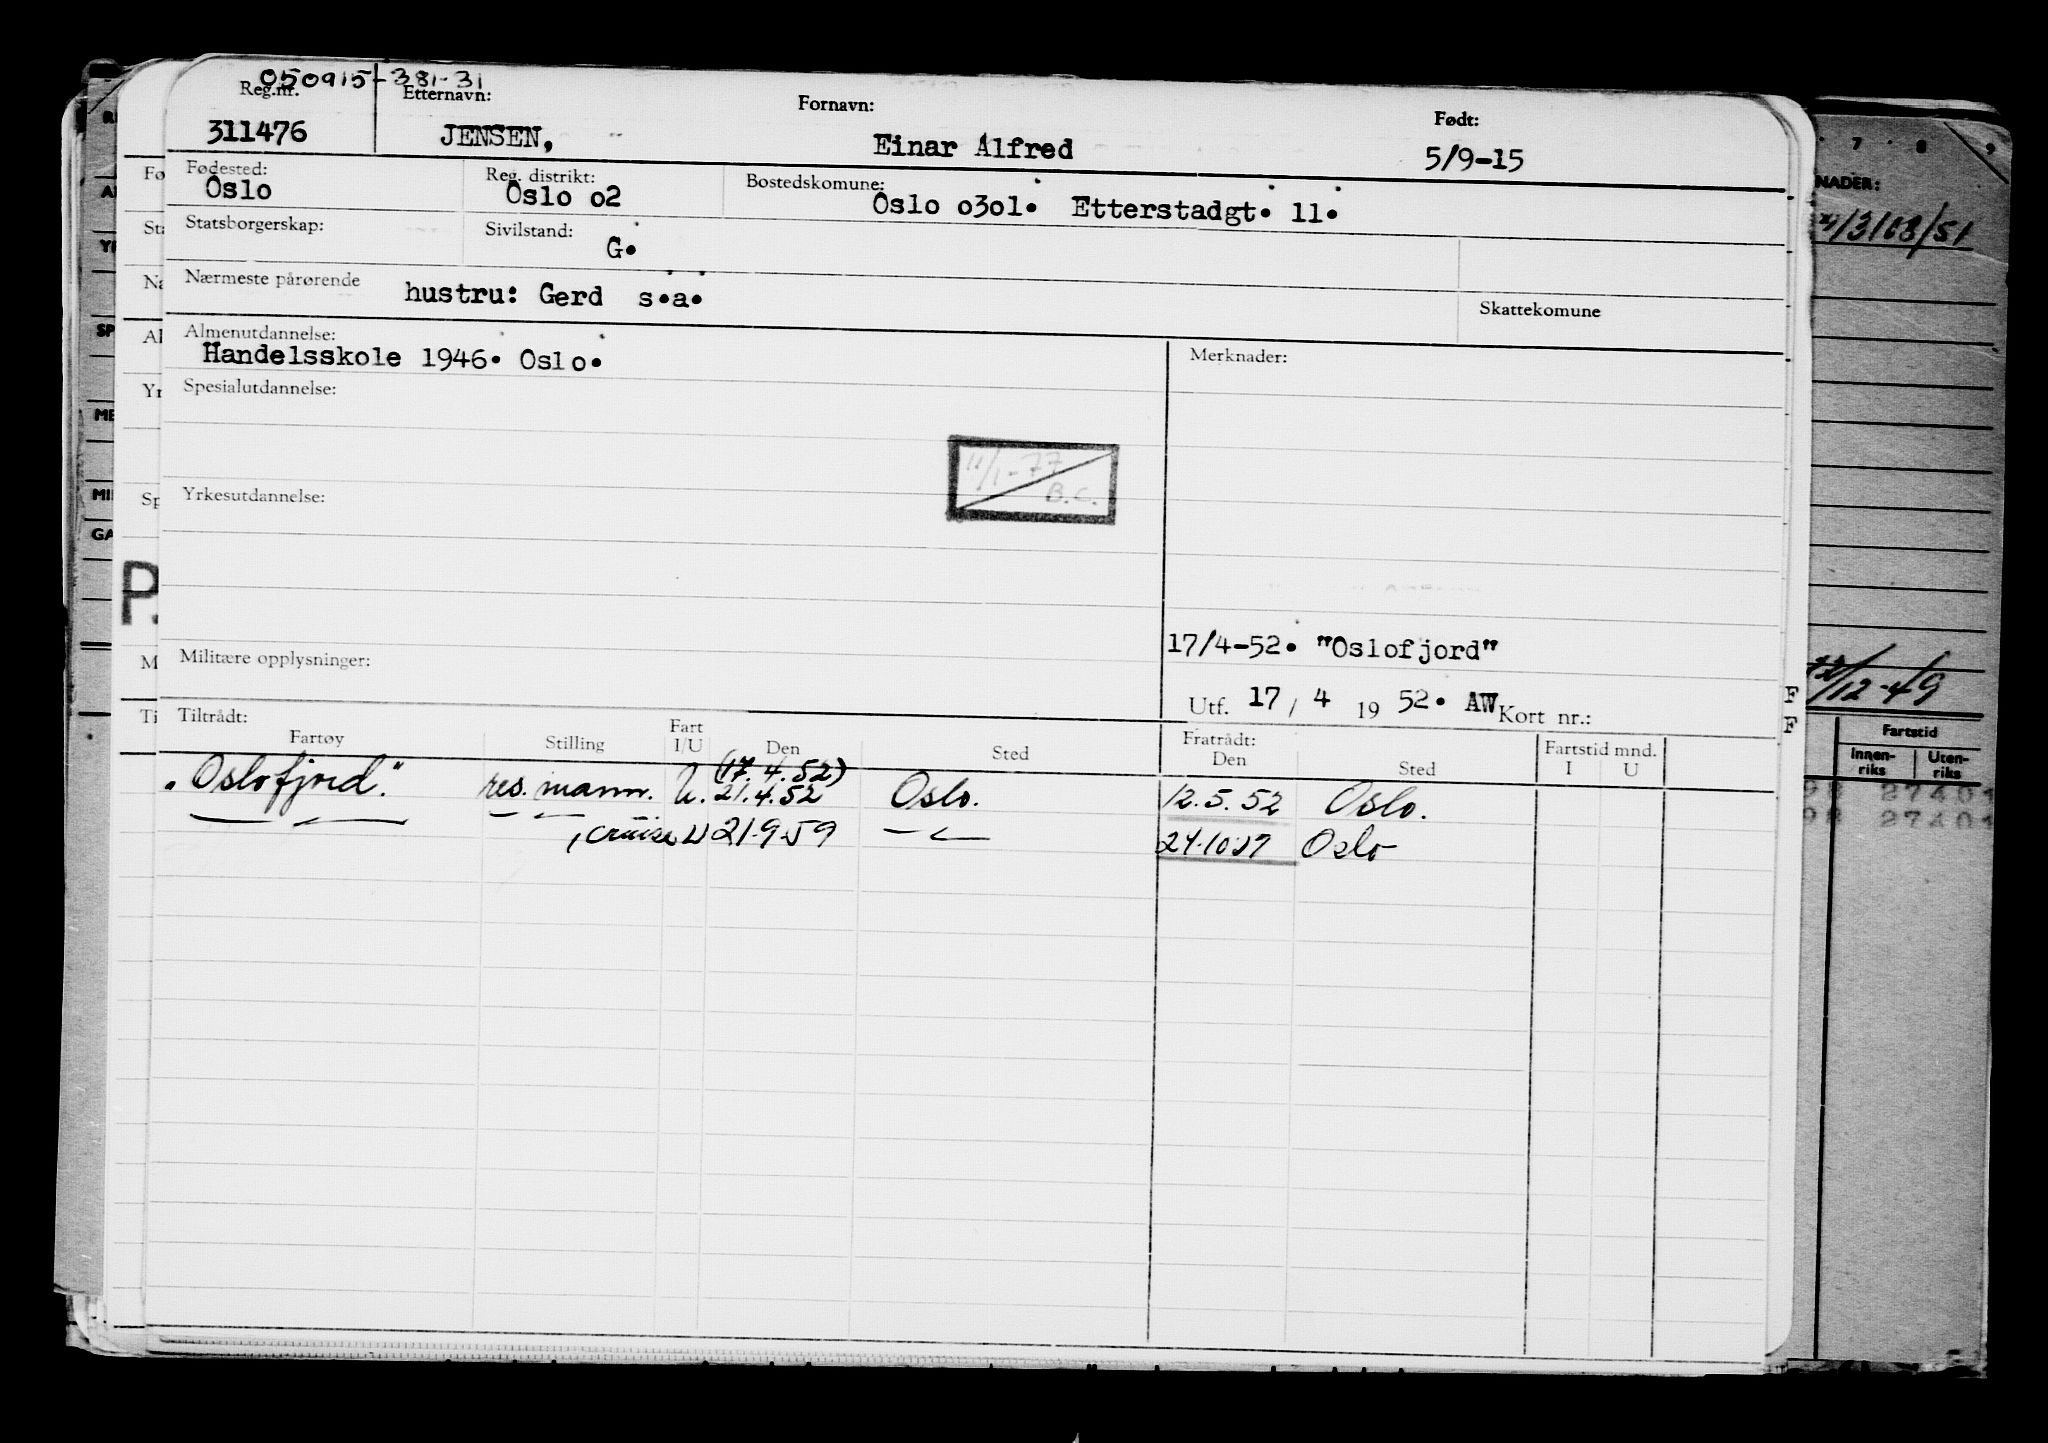 050915-381-31
Reg.nr. Etternavn: Fornavn: Født:
311476 JENSEN, Einar Alfred 5/9-15
Fødested: Reg. distrikt: Bostedskomune:
Oslo Oslo o2 Oslo o3o1. Etterstadgt. 11.
Statsborgerskap: Sivilstand:
G.
Nærmeste pårørende hustru: Gerd s.a. Skattekomune
Almenutdannelse: Merknader:
Handelsskole 1946. Oslo.
Spesialutdannelse:
11/1-77
B.C.
Yrkesutdannelse:
17/4-52. "Oslofjord"
Militære opplysninger:
Utf. 17 / 4 19 52. AW Kort nr.:
Tiltrådt: Fratrådt:
Fartøy Stilling Fart I/U Den Sted Den Sted Fartstid mnd. I U
(17.4.52)
"Oslofjord". res. mann. U. 21.4.52 Oslo. 12.5.52 Oslo.
cruise U 21.9.59 Oslo
7 8 9
NADER:
3168/51
12-49
Fartstid
Innen-riks Uten-riks
98 27401
98 27401
F
F